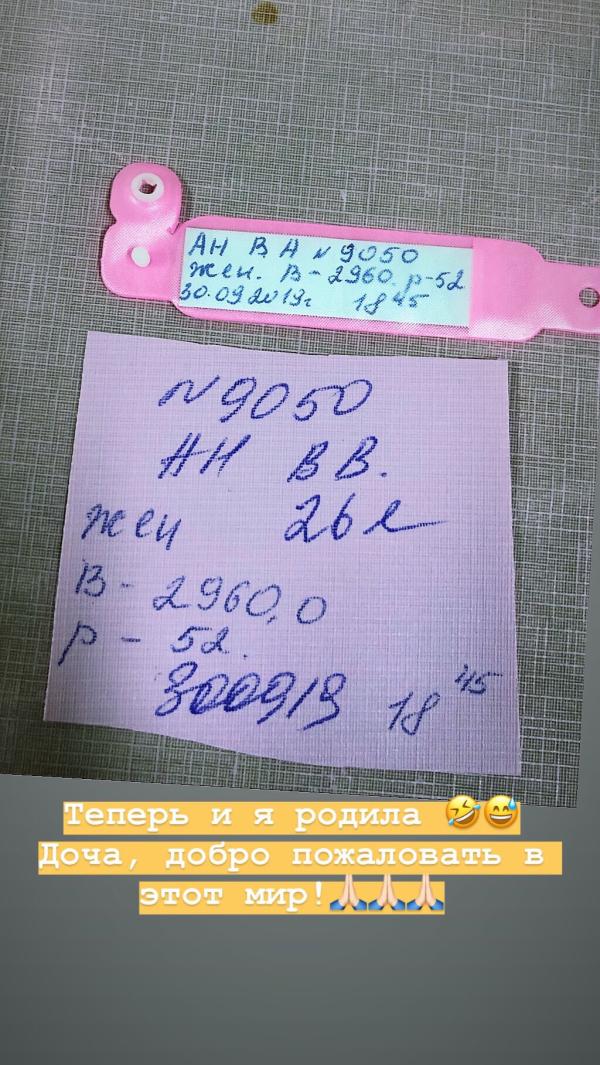 АН В А №9050
жен. В-2960. р-52
30.09.2019г 18 45
№9050
АН ВВ.
жен 26 л
В-2960,0
р - 52.
300919 18 45
Теперь и я родила 🤣😅
Доча, добро пожаловать в
этот мир!🙏🏻🙏🏻🙏🏻